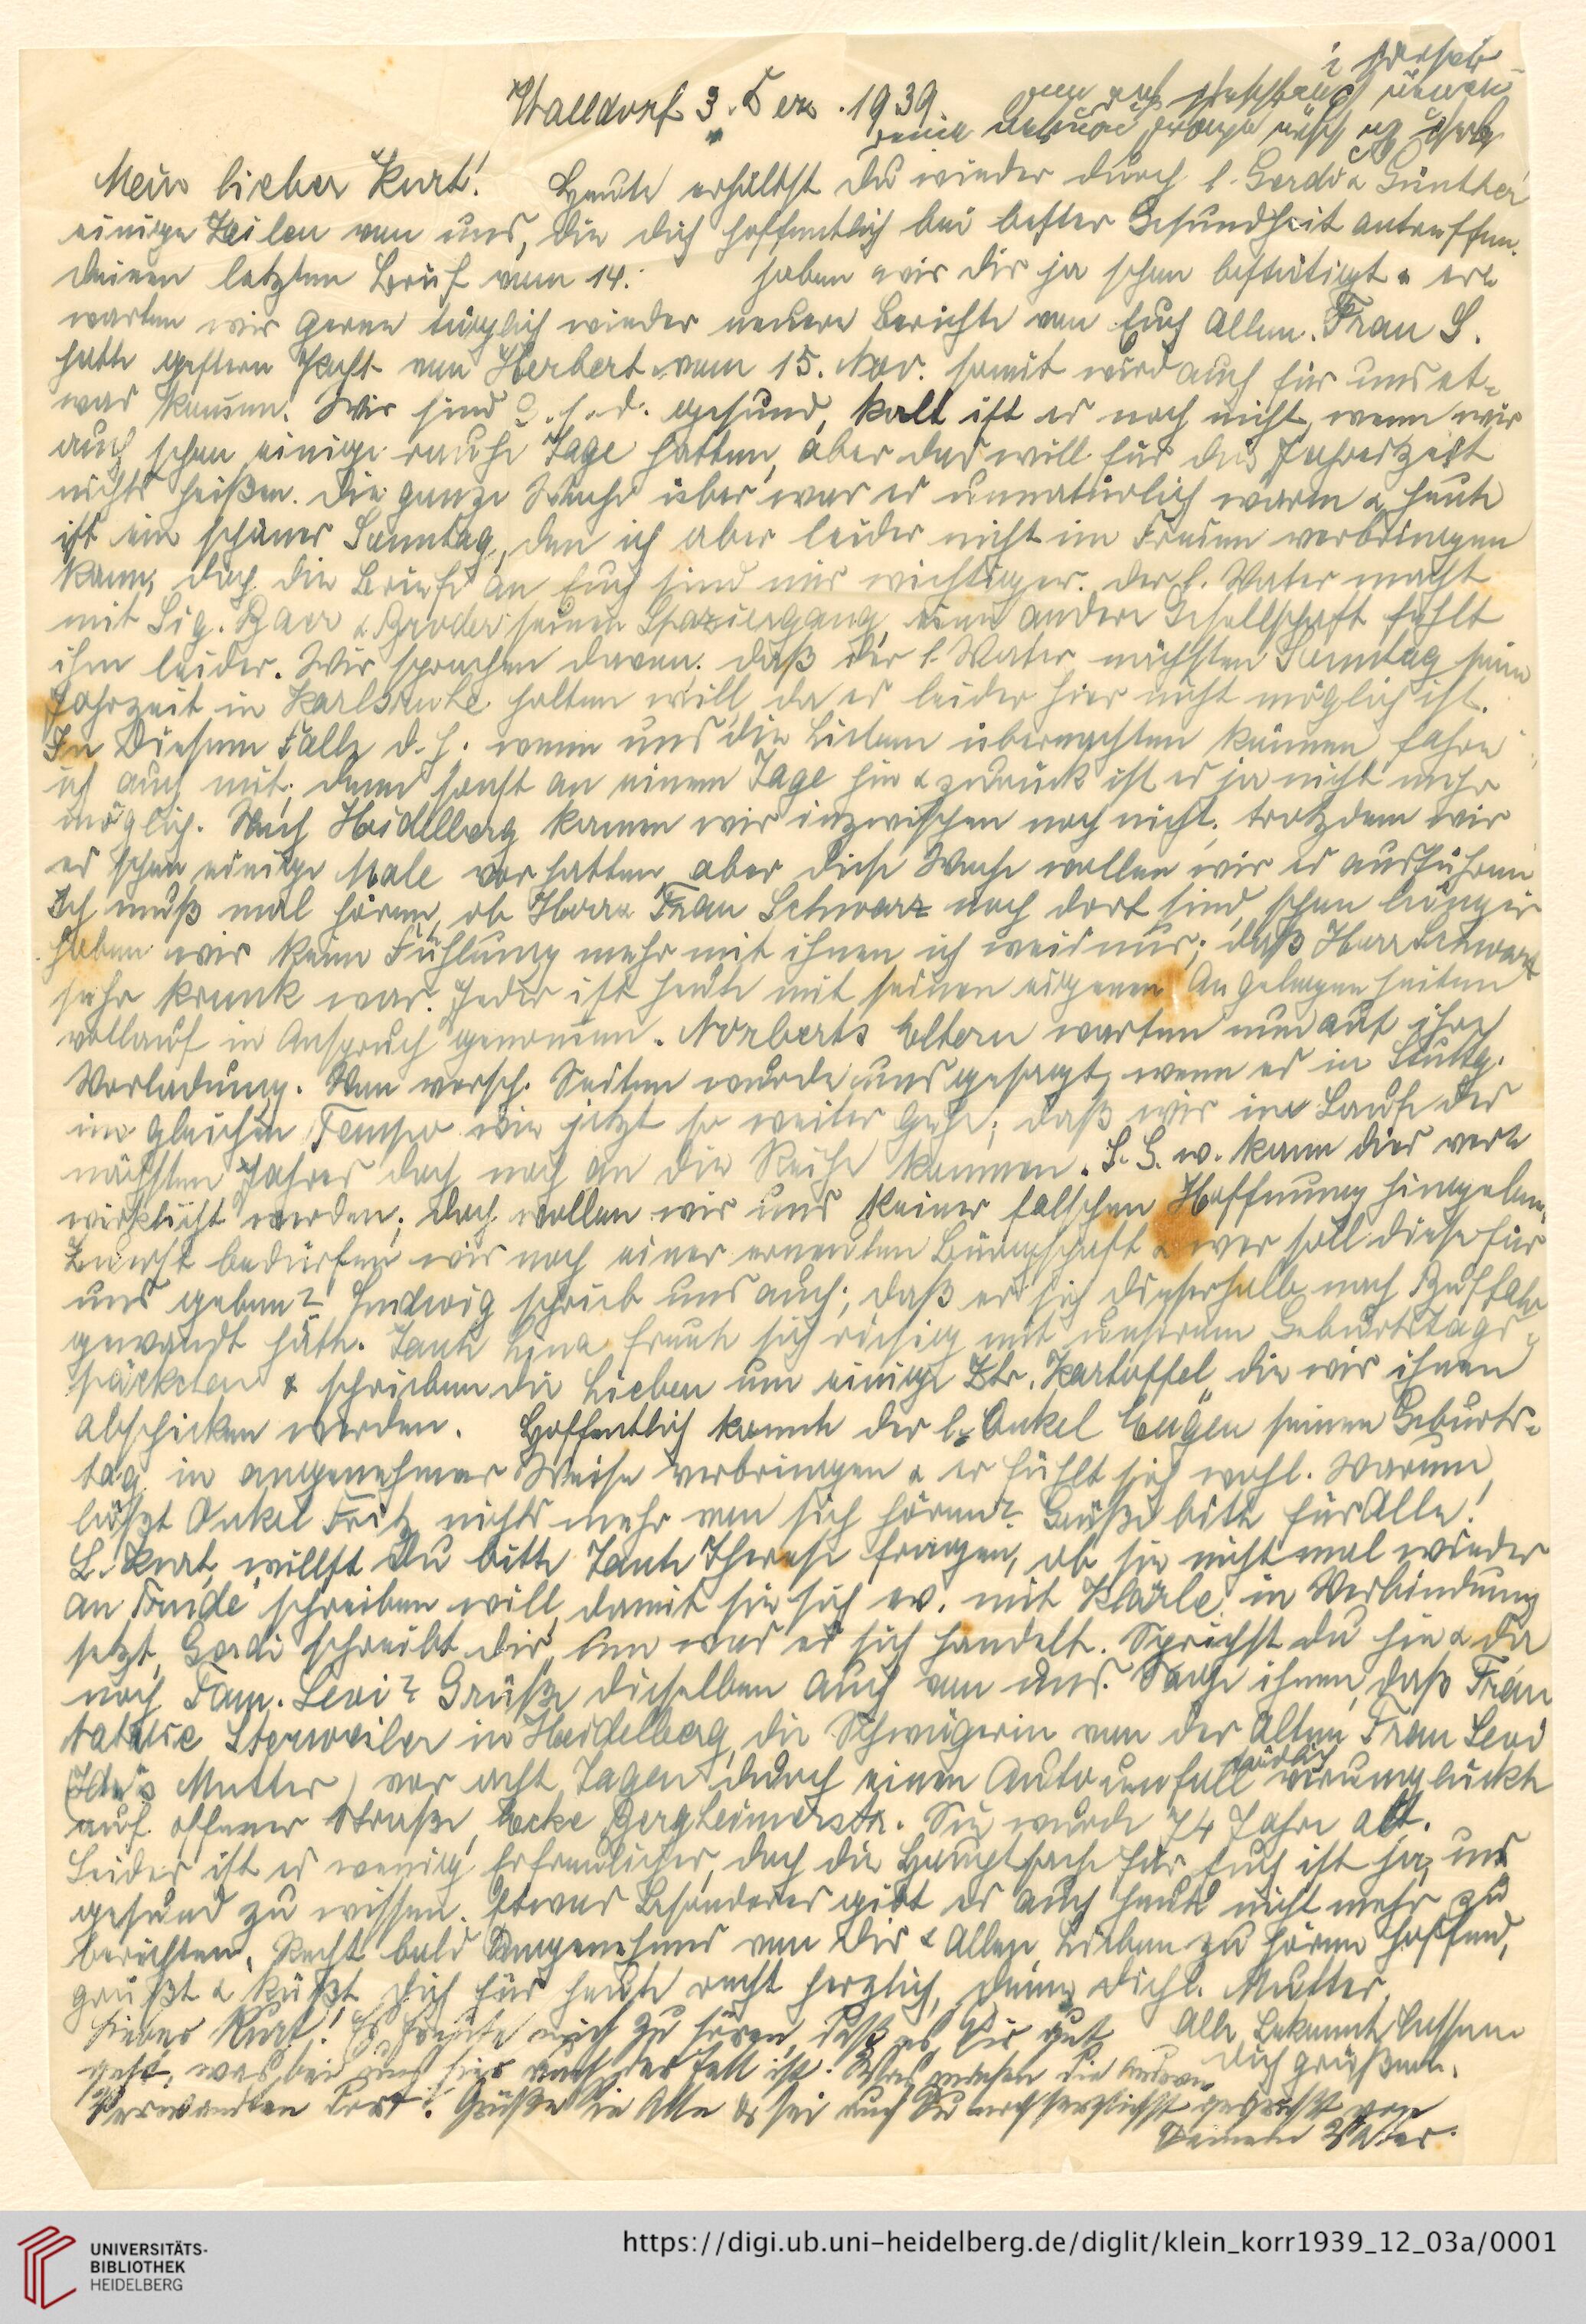 Walldorf 3. Dez. 1939.
Mein lieber Kurt! Heute erhältst Du wieder durch l. Gerdi & Günther
einige Zeilen von uns, die Dich hoffentlich bei bester Gesundheit antreffen.
Deinen letzten Brief vom 14. haben wir Dir ja schon bestätigt & er-
warten wir gerne täglich wieder neuere Berichte von Euch Allen. Frau S.
hatte gestern Post von Herbert vom 15. Nov. somit wird auch für uns et-
was kommen. Wir sind G. s. d. gesund, kalt ist es noch nicht, wenn wir
auch schon einige rauhe Tage hatten, aber das will für die Jahreszeit
nichts heißen. Die ganze Woche über war es unnatürlich warm & heute
ist ein schöner Sonntag, den ich aber leider nicht im Freien verbringen
kann, doch die Briefe an Euch sind mir wichtiger. Der l. Vater macht
mit Sig. Baer & Bruder seinen Spaziergang, eine andere Gesellschaft fehlt
ihm leider. Wir sprachen davon, daß der l. Vater nächsten Sonntag sein
Jahrzeit in Karlsruhe halten will, da es leider hier nicht möglich ist.
In diesem Falle d. h. wenn uns die Lieben übernachten können, fahre
ich auch mit, denn sonst an einem Tage hin & zurück ist es ja nicht mehr
möglich. Nach Heidelberg kamen wir inzwischen noch nicht, trotzdem wir
es schon einige Male vor hatten, aber diese Woche wollen wir es ausführen
Ich muß mal hören, ob Herr & Frau Schwarz noch dort sind, schon länger
haben wir keine Fühlung mehr mit ihnen ich weis nur, daß Herr Schwarz
sehr krank war. Jeder ist heute mit seinen eigenen Angelegenheiten
vollauf in Anspruch genommen. Norberts Eltern warten nun auf ihre
Vorladung. Von versch. Seiten wurde uns gesagt, wenn es in Stuttg.
im gleichen Tempo wie jetzt so weiter gehe, daß wir im Laufe des
nächsten Jahres doch noch an die Reihe kommen. S. G. w. kann dies ver-
wirklicht werden, doch wollen wir uns keiner falschen Hoffnung hingeben,
Zuerst bedürfen wir noch einer erneuten Bürgschaft & wer soll diese für
uns geben? Ludwig schrieb uns auch, daß er sich dieserhalb nach Buffalo
gewandt hätte. Tante Lina freute sich riesig mit unserem Geburtstags-
päckchen & schrieben die Lieben um einige Ztr. Kartoffel, die wir ihnen
abschicken werden. Hoffentlich konnte der l. Onkel Eugen seinen Geburts-
tag in angenehmer Weise verbringen & er fühlt sich wohl. Warum
läßt Onkel Fritz nichts mehr von sich hören? Grüße bitte für Alle!
L. Kurt, willst Du bitte Tante Therese fragen, ob sie nicht mal wieder
an Friede schreiben will, damit sie sich ev. mit Klärle in Verbindung
setzt, Gerdi schreibt Dir, um was es sich handelt. Sprichst Du hin & da
noch Fam. Levi? Grüße dieselben auch von uns. Sage ihnen, daß Frau
Sternweiler in Heidelberg, die Schwägerin von der alten Frau Levi
(Ida's Mutter) vor acht Tagen durch einen Autounfall tödlich verunglückte
auf offener Straße, Ecke Bergheimerstr. Sie wurde 74 Jahre alt.
Leider ist es wenig Erfreuliches, doch die Hauptsache für Euch ist ja, uns
gesund zu wissen. Etwas Besonderes gibt es auch heute nicht mehr zu
berichten. Recht bald Angenehmes von Dir & Allen Lieben zu hören hoffend,
grüßt & küßt Dich für heute recht herzlich, Deine Dich l. Mutter.
Alle Bekannte lassen
Dich grüßen.
Lieber Kurt! Es freute mich zu hören, daß es Dir gut
geht, was bei uns hier auch der Fall ist. Was machen die anderen
Verwandten dort. Grüße sie Alle & sei auch Du noch herzlichst gegrüßt von
Deinem Vater.
UNIVERSITÄTS-
BIBLIOTHEK
HEIDELBERG
https://digi.ub.uni-heidelberg.de/diglit/klein_korr1939_12_03a/0001